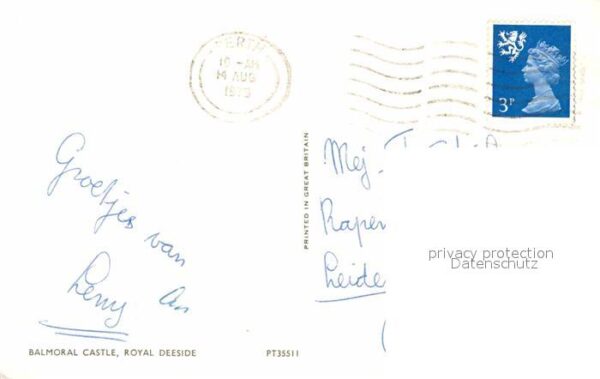 PERTH
10 - AM
14 AUG
1973
3P
Groetjes van
Leny
PRINTED IN GREAT BRITAIN
Mej.
Raper
Leide
privacy protection
Datenschutz
BALMORAL CASTLE, ROYAL DEESIDE
PT35511